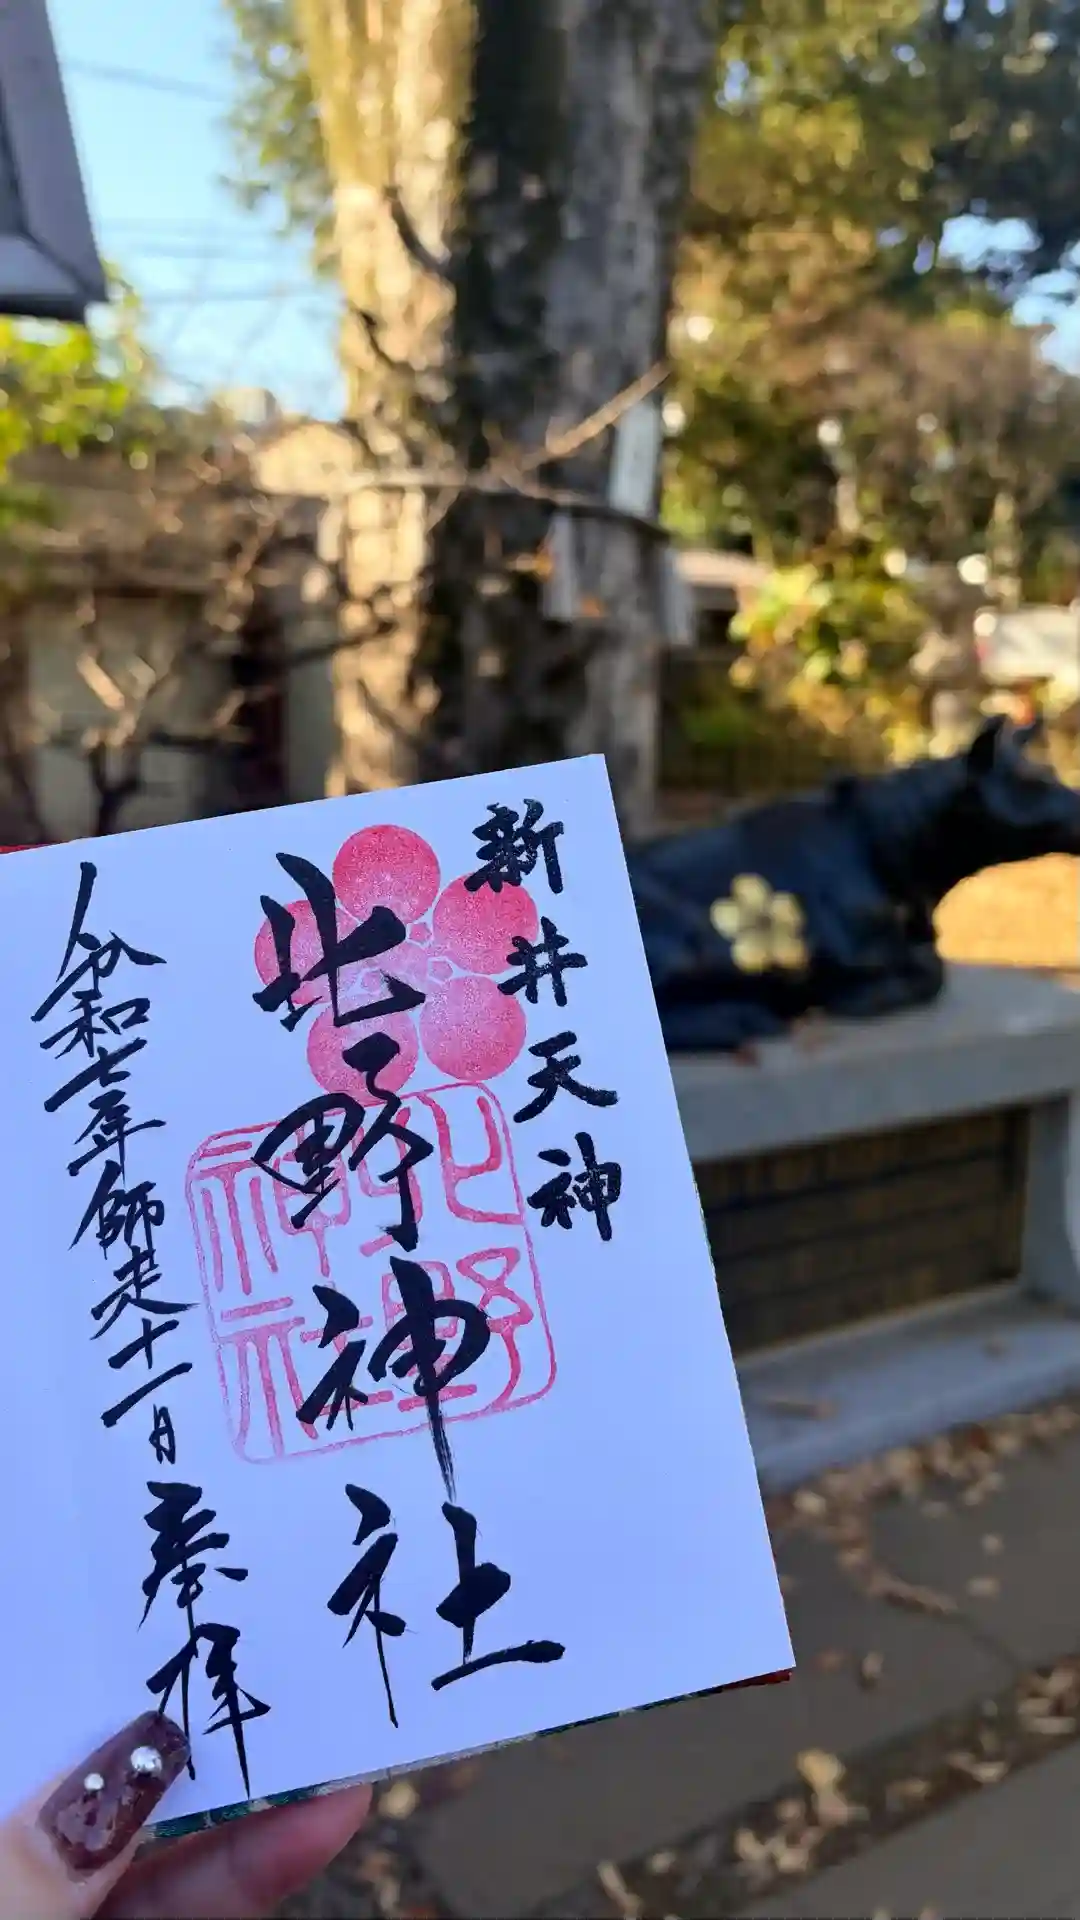 新井天神
北野神社
北野
神社
令和七年師走十一日
奉拝